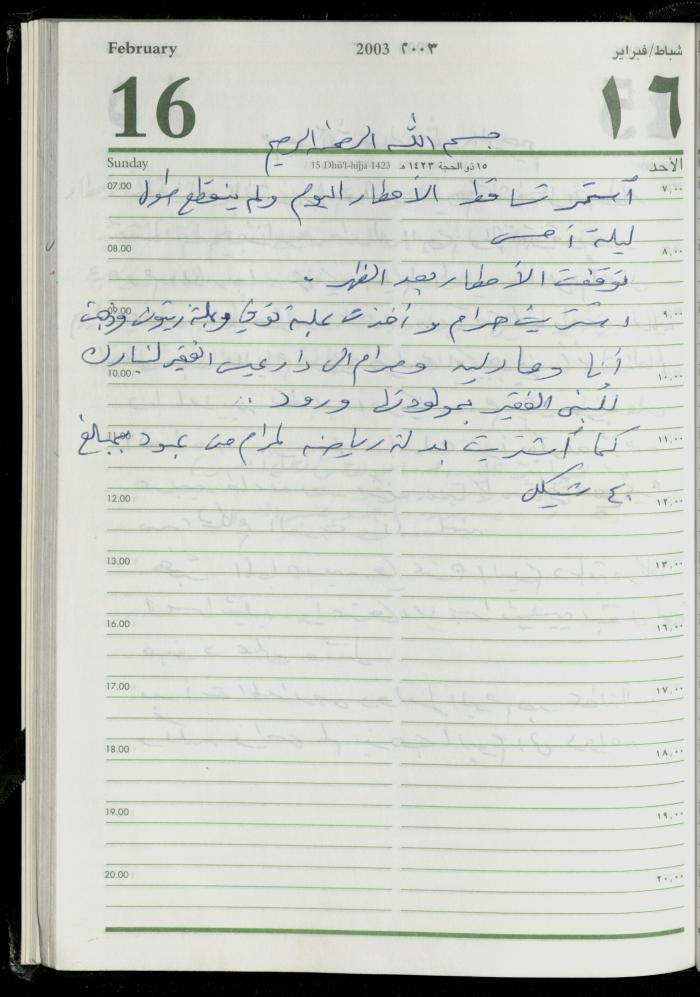 February 2003 ٢٠٠٣ شباط/فبراير
16 ١٦
بسم الله الرحمن الرحيم
Sunday 15 Dhū'l-hijja 1423 ١٥ ذو الحجة ١٤٢٣ هـ الأحد
07.00 أستمر تساقط الأمطار اليوم ولم ينقطع طول ٧,٠٠
ليلة أمس
08.00 ٨,٠٠
توقفت الأمطار بعد الظهر .
09.00 اشتريت مرام و أخذت علبة توفي وعلبة زيتون وذهبت ٩,٠٠
أنا ومرام الى دار عيسى الفقير لنبارك
10.00 ١٠,٠٠
للبنى الفقير بمولودتها ورود .
11.00 كما أشتريت بدلة رياضه لمرام من عبود بمبلغ ١١,٠٠
٤٠ شيكل
12.00 ١٢,٠٠
13.00 ١٣,٠٠
16.00 ١٦,٠٠
17.00 ١٧,٠٠
18.00 ١٨,٠٠
19.00 ١٩,٠٠
20.00 ٢٠,٠٠